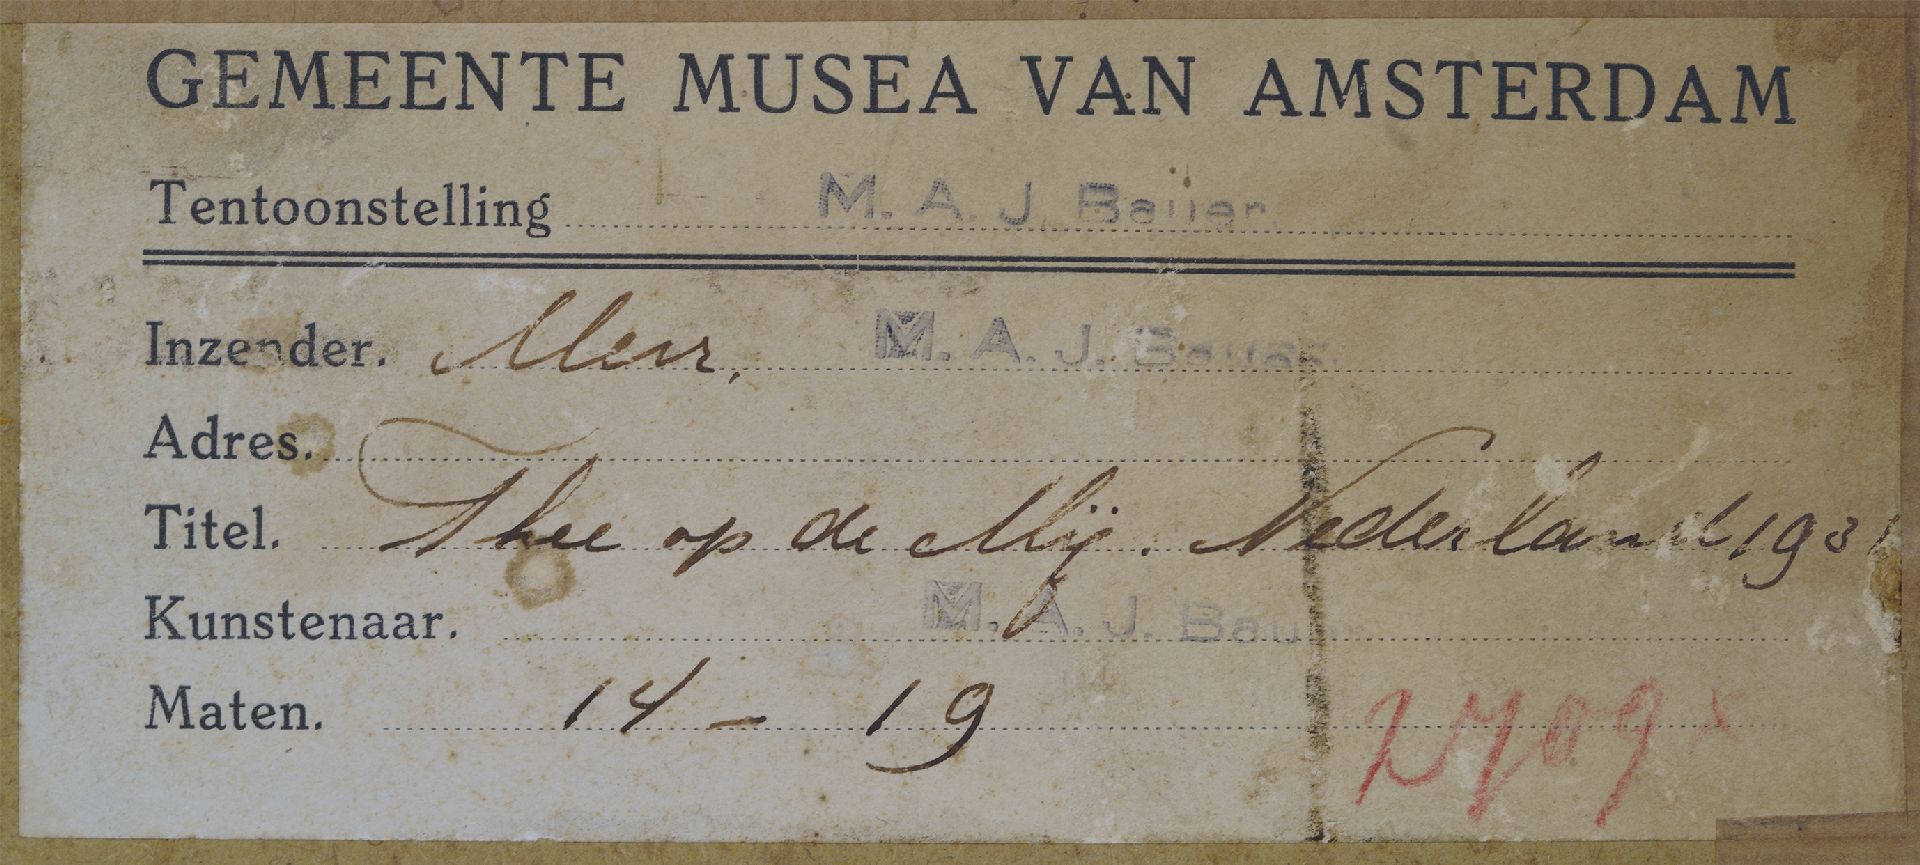 GEMEENTE MUSEA VAN AMSTERDAM
Tentoonstelling M. A. J. Bauer.
Inzender. M. A. J. Bauer
Adres.
Titel. Thee op de Mij. Nederland 1931
Kunstenaar. M. A. J. Bauer
Maten. 14 – 19